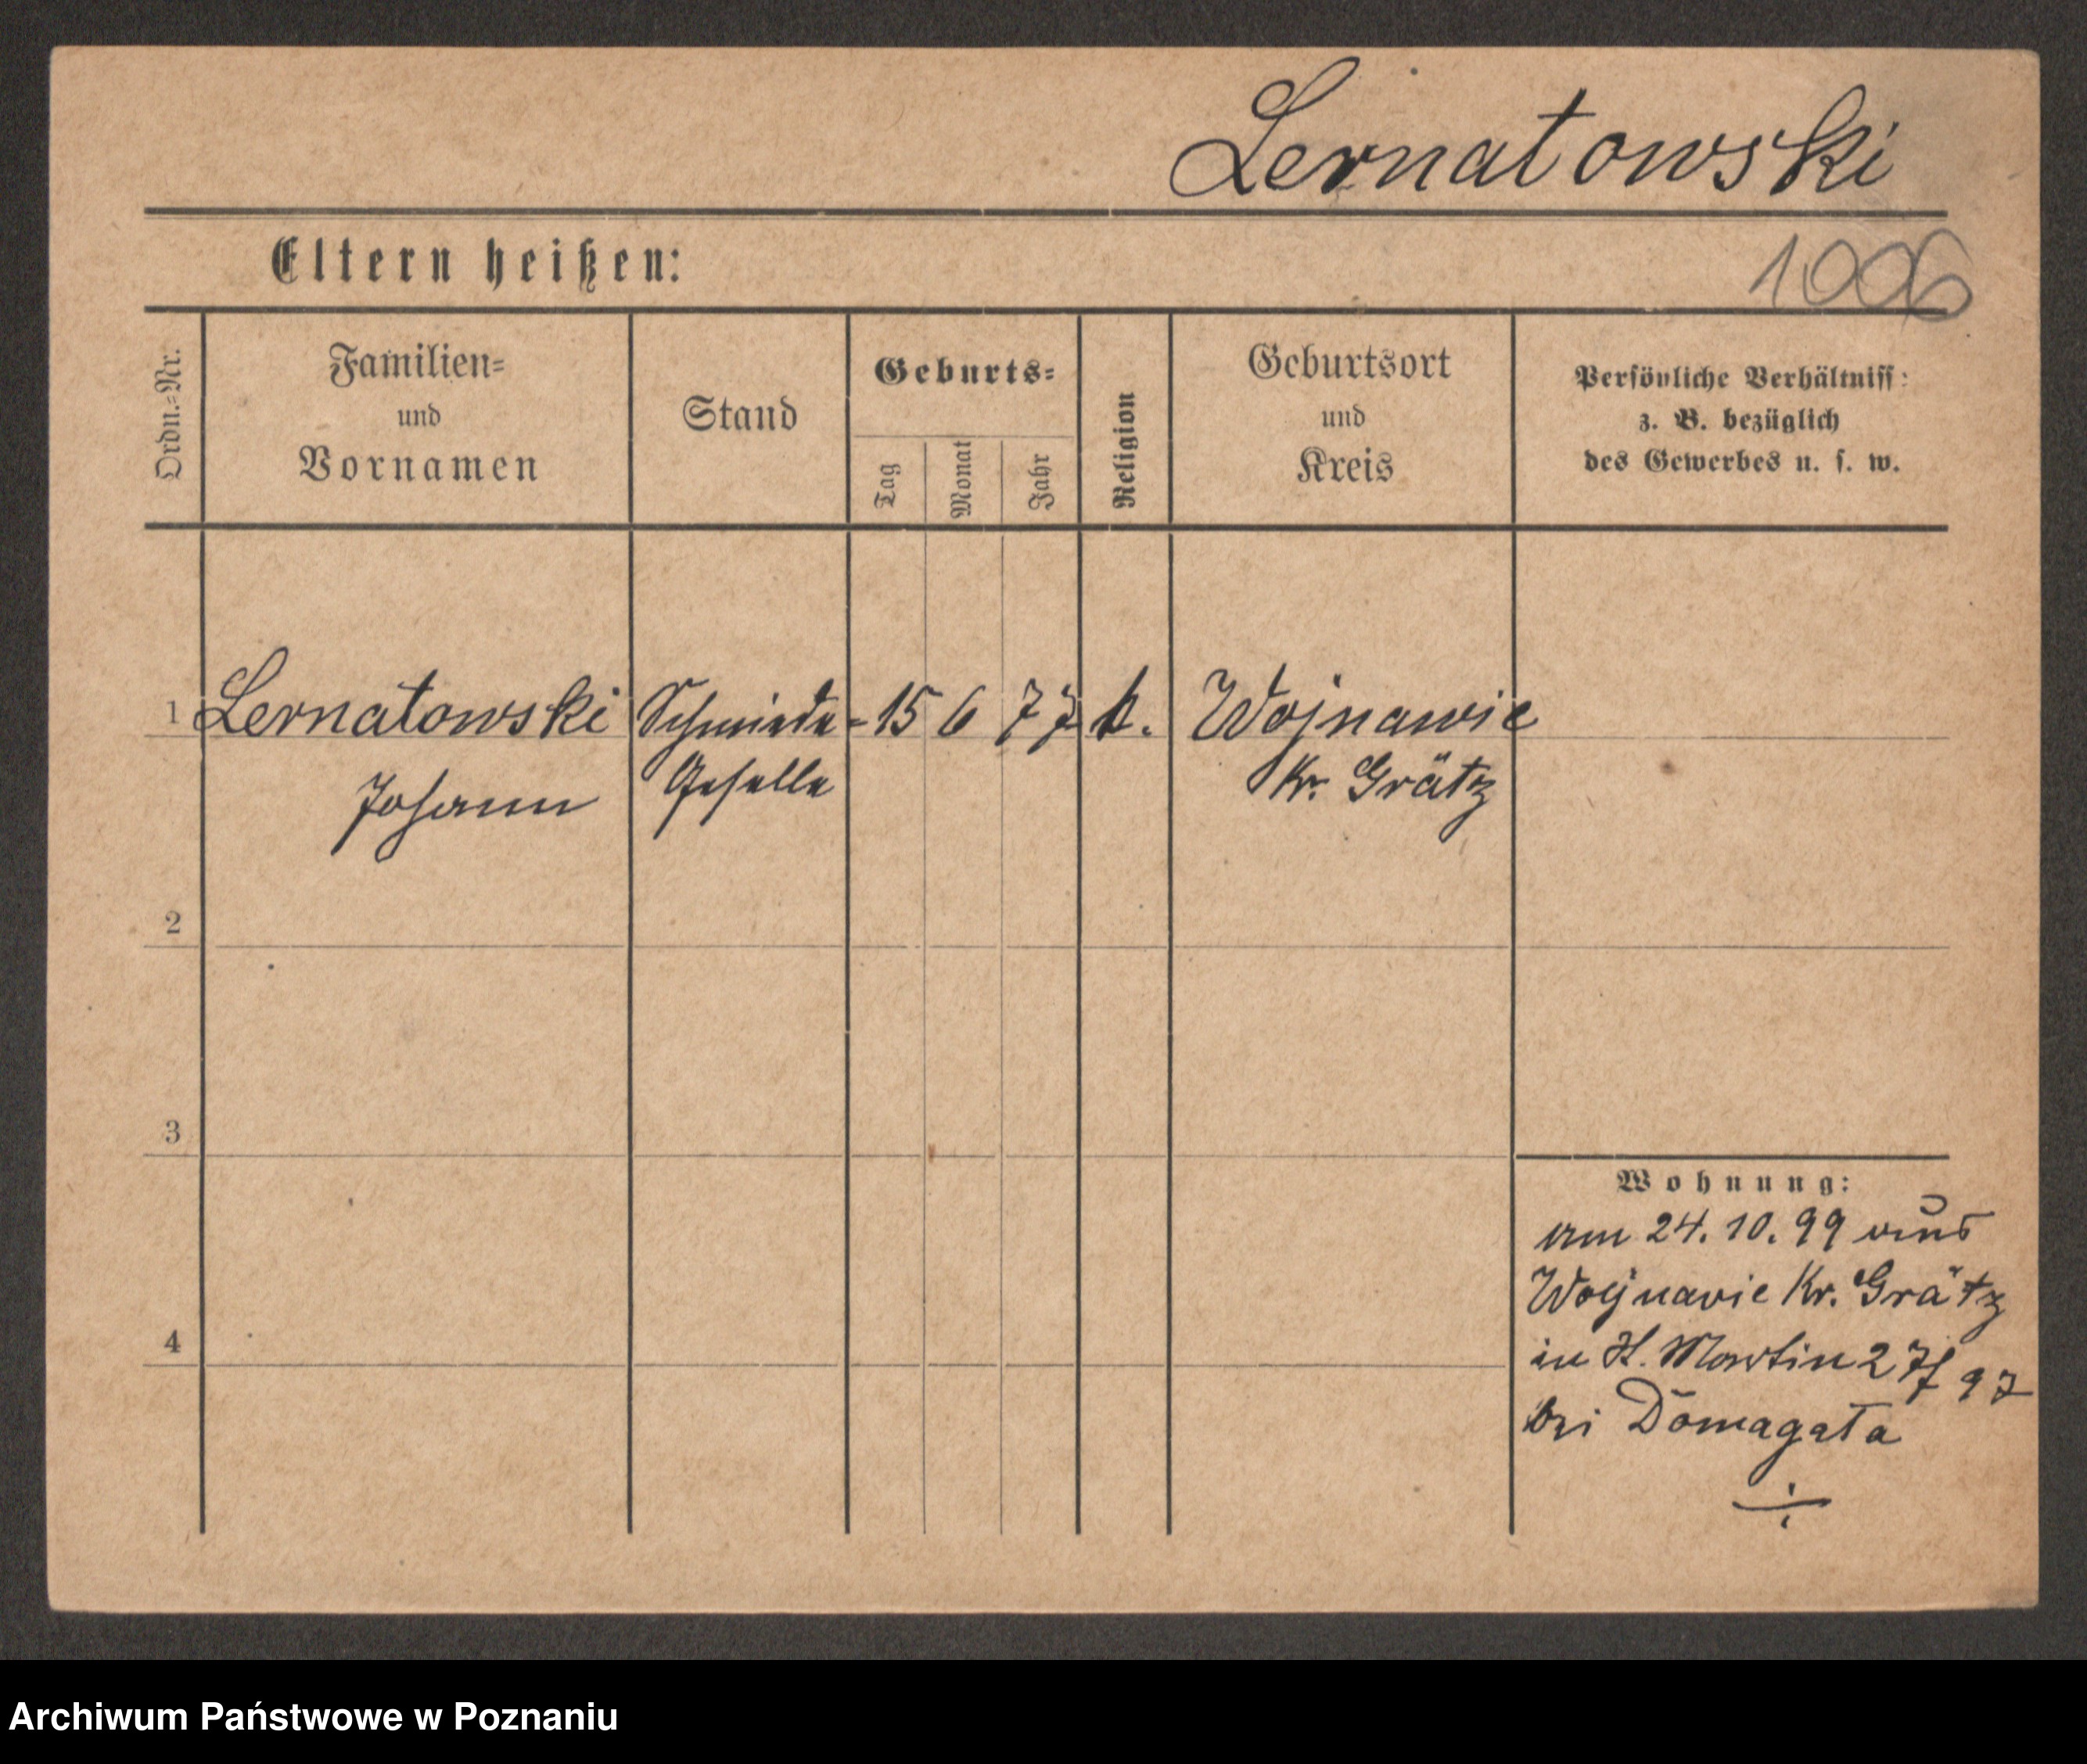 Lernatowski
Eltern heißen:
1006
Ordn.-Nr.
Familien-
und
Vornamen
Stand
Geburts-
Tag
Monat
Jahr
Religion
Geburtsort
und
Kreis
Persönliche Verhältniss:
z. B. bezüglich
des Gewerbes u. s. w.
1 Lernatowski Schmiede- 15 6 77 k. Wojnawie
Johann Geselle Kr. Grätz
2
3
Wohnung:
am 24. 10. 99 aus
Wojnawie Kr. Grätz
4
in St. Martin 27
bei Domagata
Archiwum Państwowe w Poznaniu